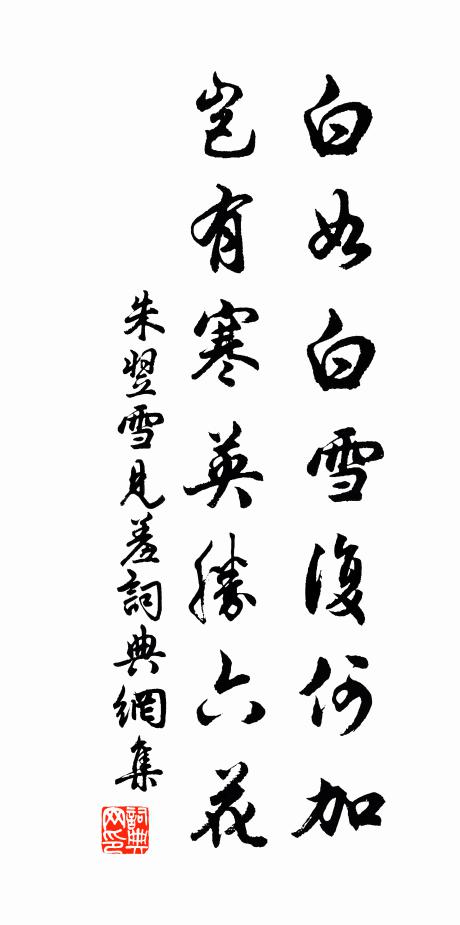 白如白雪復何加
豈有寒英勝六花
朱翌雪見羞詞典網集
詞典网印